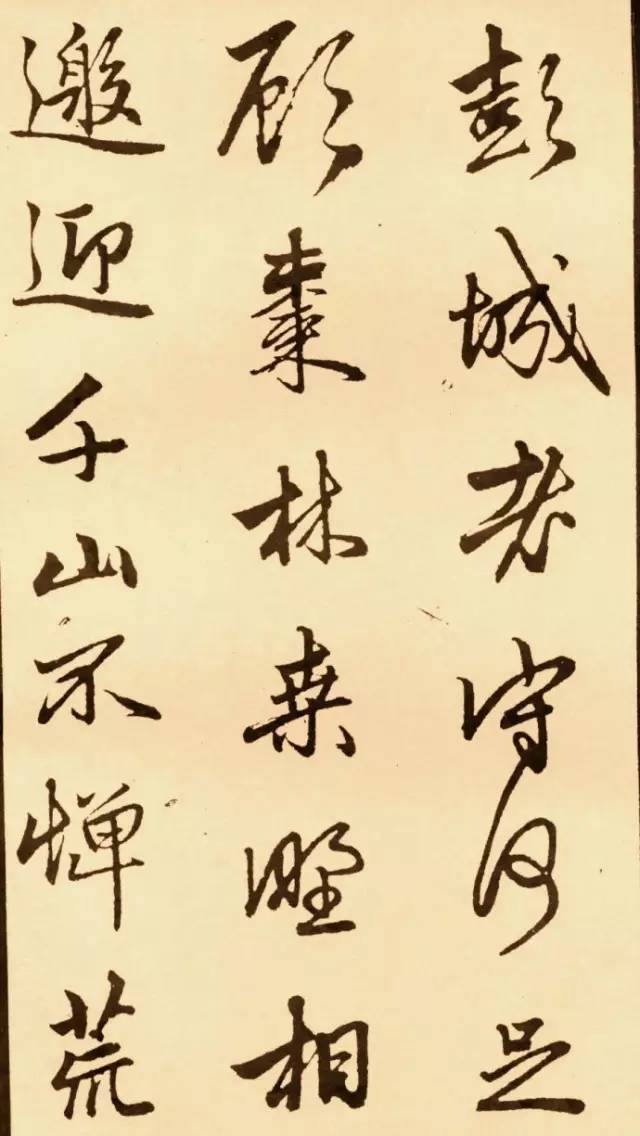 彭城老守何足
顾棗林桒野相
邀迎千山不惮荒